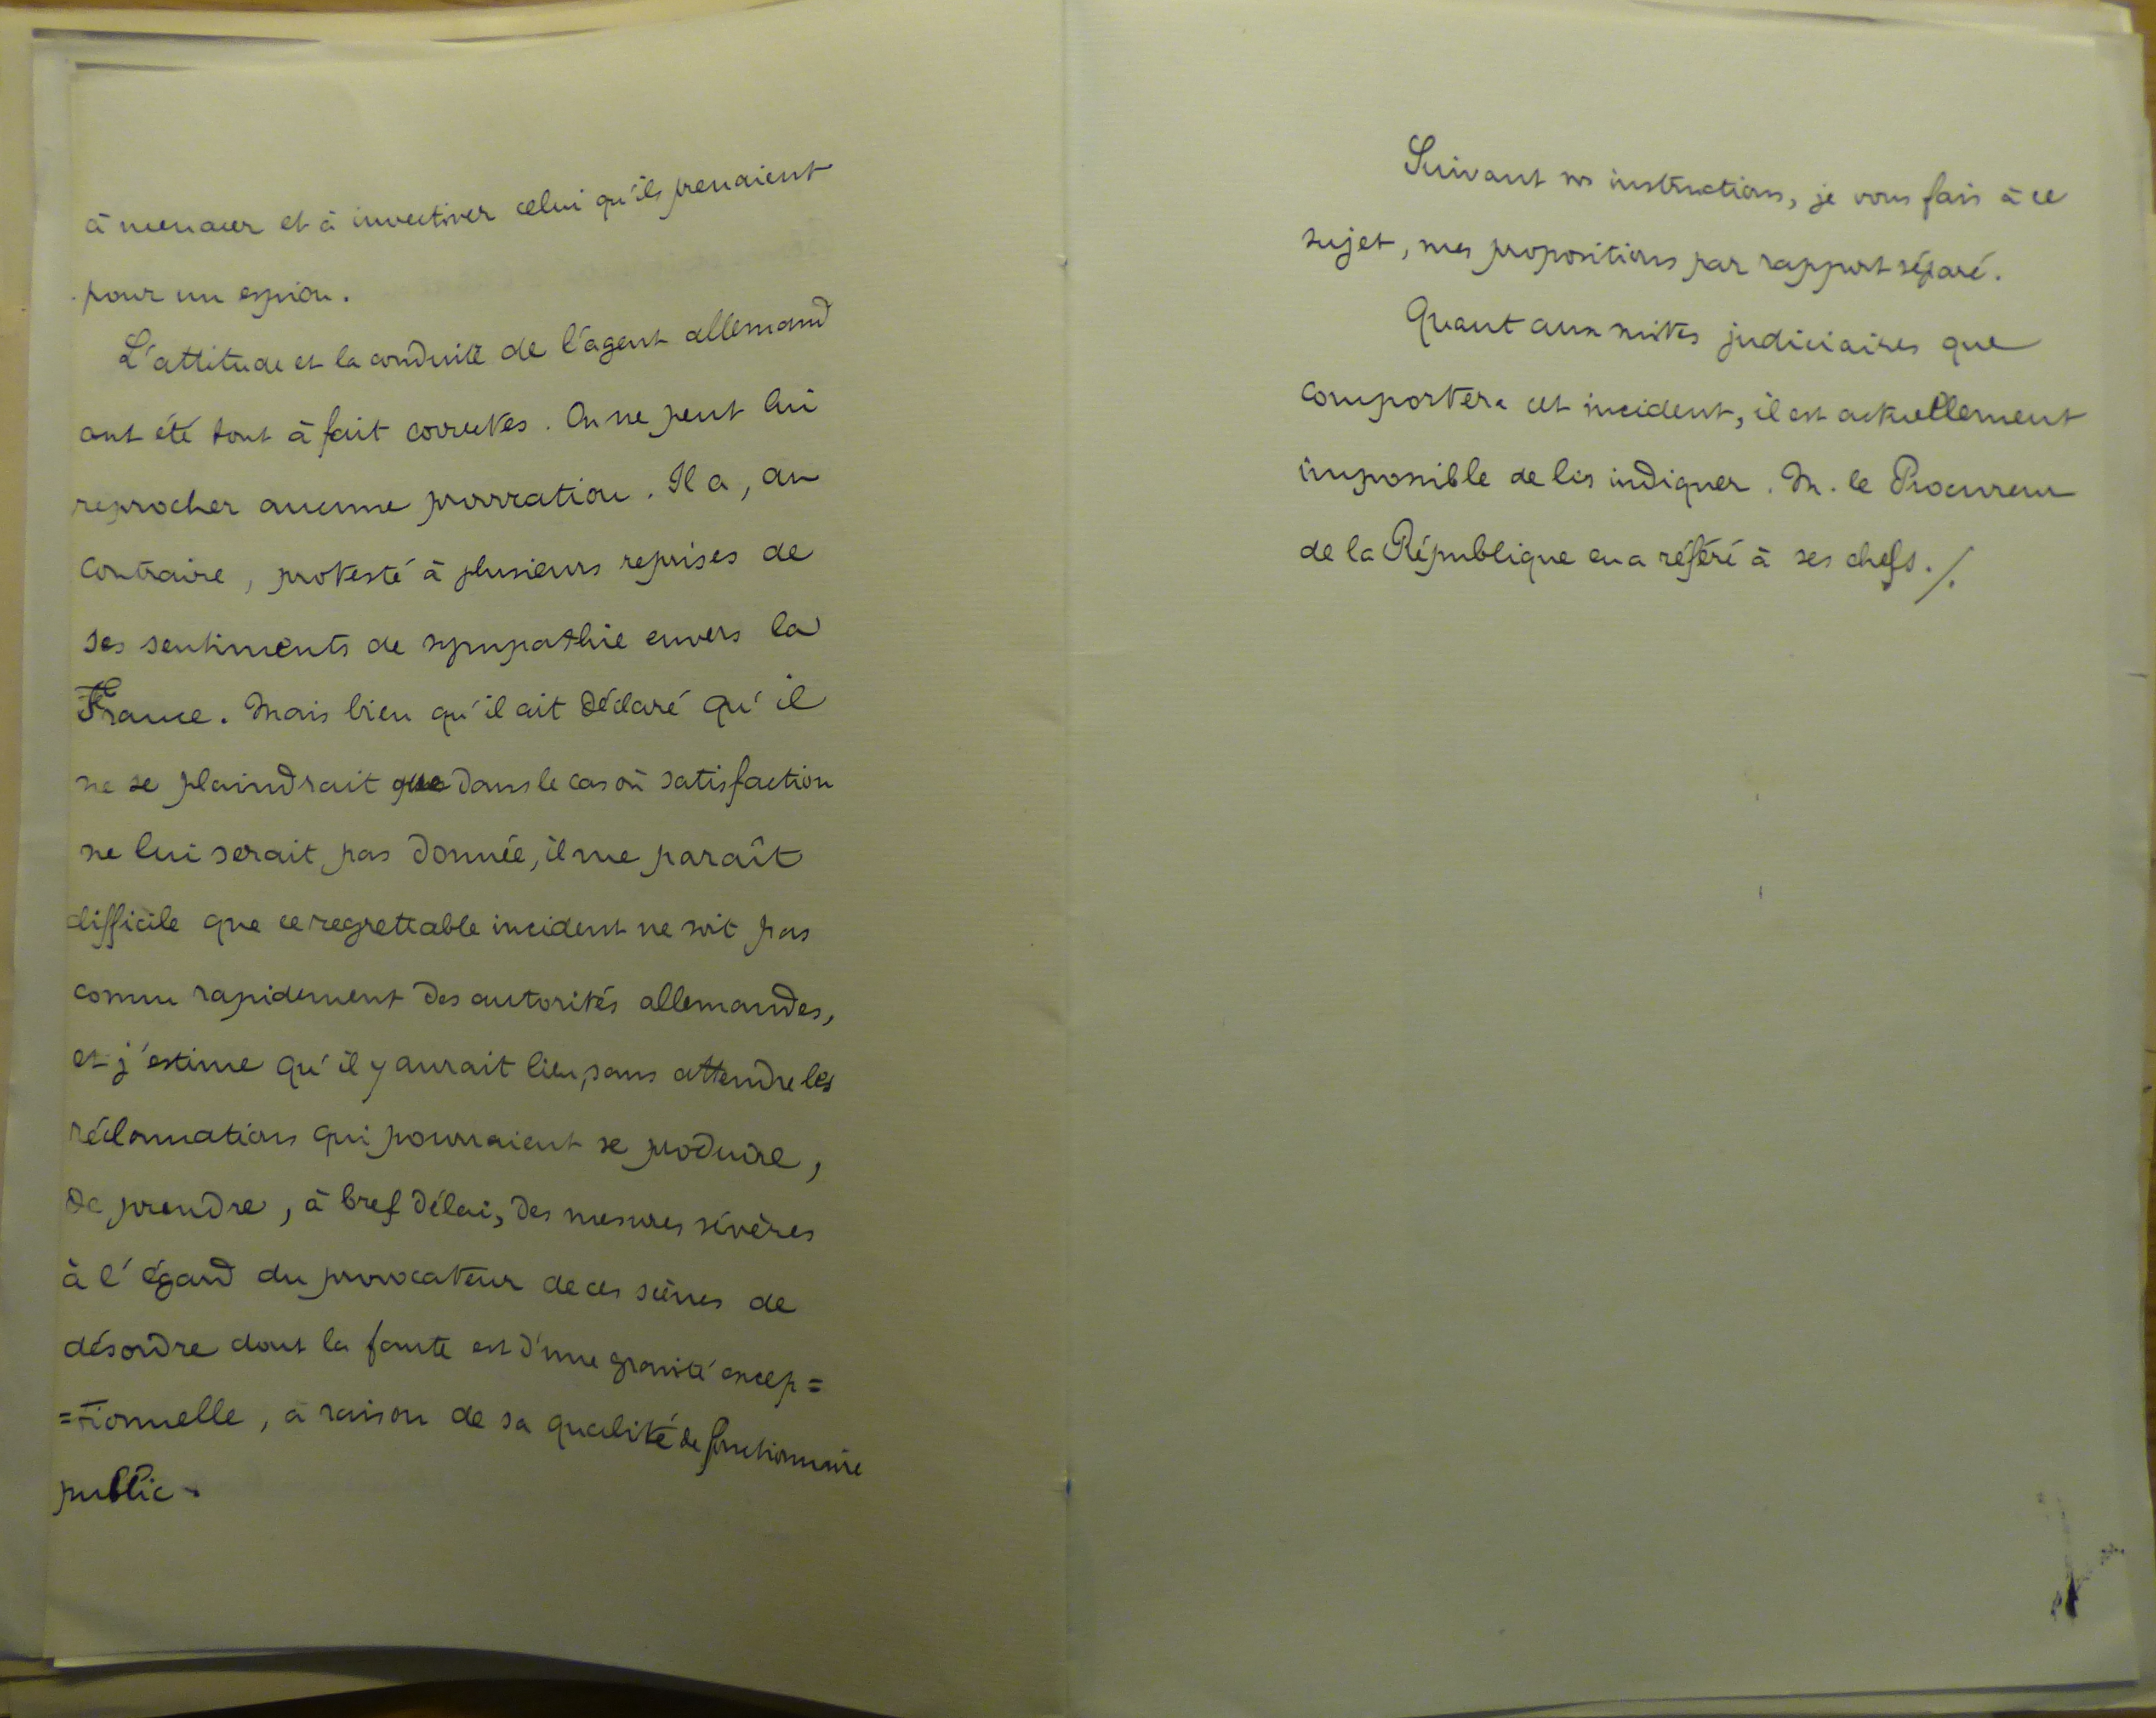 à menacer et à invectiver celui qu'ils prenaient
pour un espion.
L'attitude et la conduite de l'agent allemand
ont été tout à fait correctes. On ne peut lui
reprocher aucune provocation. Il a, au
contraire, protesté à plusieurs reprises de
ses sentiments de sympathie envers la
France. Mais bien qu'il ait déclaré qu'il
ne se plaindrait que dans le cas où satisfaction
ne lui serait pas donnée, il me paraît
difficile que ce regrettable incident ne soit pas
connu rapidement des autorités allemandes,
et j'estime qu'il y aurait lieu, sans attendre les
réclamations qui pourraient se produire,
de prendre, à bref délai, des mesures sévères
à l'égard du provocateur de ces scènes de
désordre dont la faute est d'une gravité excep=
=tionnelle, à raison de sa qualité de fonctionnaire
public.
Suivant vos instructions, je vous fais à ce
sujet, mes propositions par rapport séparé.
Quant aux suites judiciaires que
comportera cet incident, il est actuellement
impossible de les indiquer. M. le Procureur
de la République en a référé à ses chefs./.